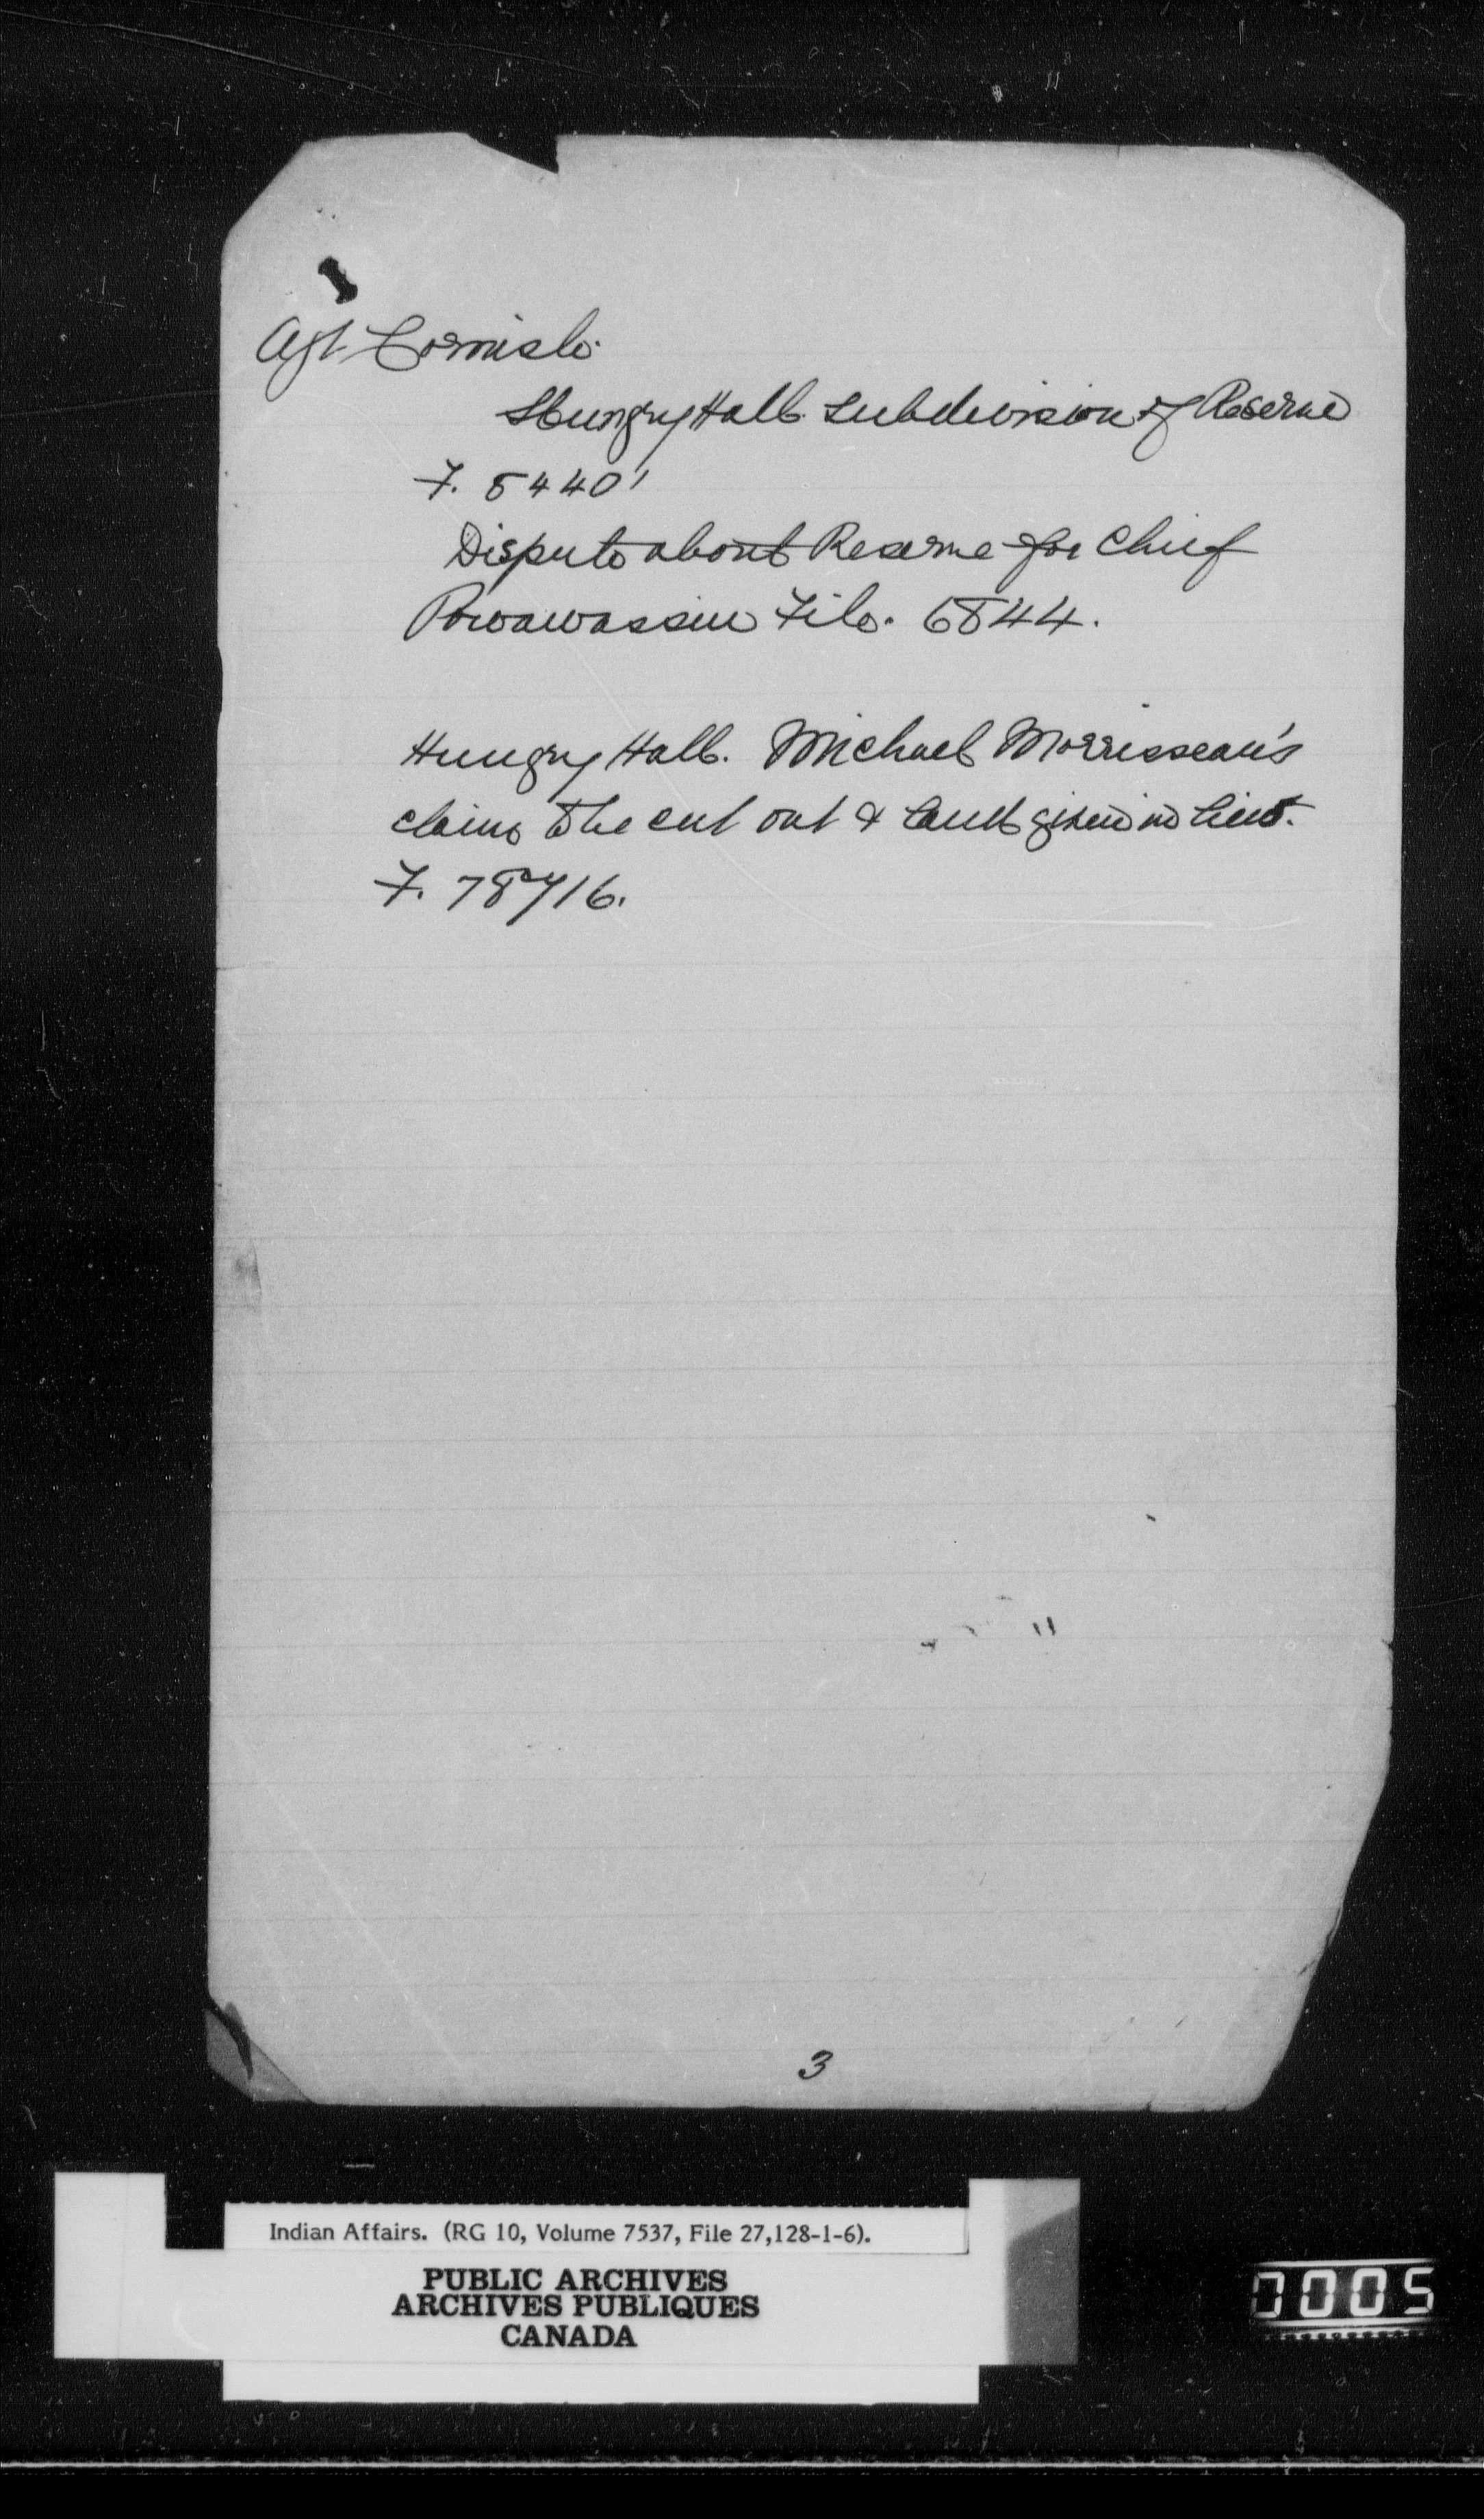 Agt Cornish.
Hungry Hall Subdivision of Reserve
F. 5440'
Dispute about Reserve for Chief
Powawassin File. 6844.
Hungry Hall. Michael Morrisseau's
claim to be cut out & land given in lieu.
F. 78716.
3
Indian Affairs. (RG 10, Volume 7537, File 27,128-1-6).
PUBLIC ARCHIVES
ARCHIVES PUBLIQUES
CANADA
0005